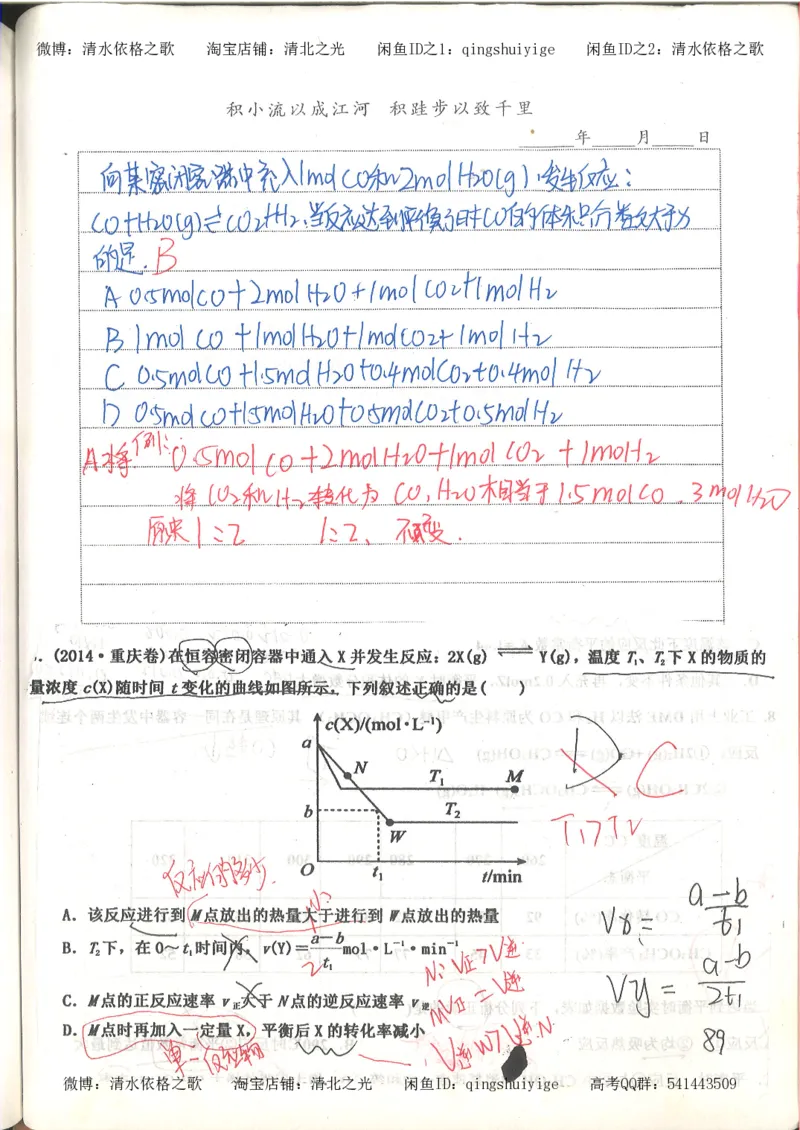 微博：清水依格之歌 淘宝店铺：清北之光 闲鱼ID之1：qingshuiyige 闲鱼ID之2：清水依格之歌
积小流以成江河 积跬步以致千里
年 月 日
向某密闭容器中充入1molCO和2molH2O(g)，发生反应：
CO+H2O(g)⇌CO2+H2，当反应达到平衡时CO的体积分数大于为
的是. B
A 0.5molCO+2molH2O+1molCO2+1molH2
B 1molCO+1molH2O+1molCO2+1molH2
C 0.5molCO+1.5molH2O+0.4molCO2+0.4molH2
D 0.5molCO+1.5molH2O+0.5molCO2+0.5molH2
A将 例：0.5molCO+2molH2O+1molCO2+1molH2
将CO2和H2转化为CO，H2O相当于1.5molCO．3molH2O
原来1:2 1:2、不变．
(2014·重庆卷)在恒容密闭容器中通入 X 并发生反应：2X(g) ⇌ Y(g)，温度 T₁、T₂下 X 的物质的
量浓度 c(X)随时间 t 变化的曲线如图所示。下列叙述正确的是( )
c(X)/(mol·L⁻¹)
a
N
T₁
M
b
T₂
W
O
t₁
t/min
D
C
T1>T2
反应的多少．
A．该反应进行到 M 点放出的热量大于进行到 W 点放出的热量
B．T₂下，在 0～t₁时间内，v(Y)＝(a－b)/t₁ mol·L⁻¹·min⁻¹
2
C．M 点的正反应速率 v正大于 N 点的逆反应速率 v逆
D．M 点时再加入一定量 X，平衡后 X 的转化率减小
单一反应物
N：V正>V逆
MV正=V逆
V逆W>V逆.N
Vx=(a-b)/t1
Vy=(a-b)/2t1
89
微博：清水依格之歌 淘宝店铺：清北之光 闲鱼ID之1：qingshuiyige 高考QQ群：541443509